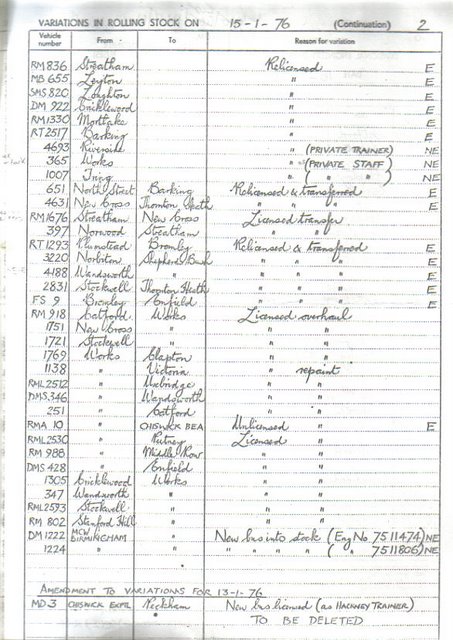 VARIATIONS IN ROLLING STOCK ON 15-1-76 (Continuation) 2
Vehicle number From To Reason for variation
RM 836 Streatham Relicensed E
MB 655 Leyton " E
SMS 820 Loughton " E
DM 922 Cricklewood " E
RM 1330 Mortlake " E
RT 2517 Barking " E
4693 Riverside " (PRIVATE TRAINER) NE
365 Works " (PRIVATE STAFF) NE
1007 Tring " ( " " ) NE
651 North Street Barking Relicensed & transferred E
4631 New Cross Thornton Heath " " " E
RM 1676 Streatham New Cross Licensed transfer
397 Norwood Streatham " "
RT 1293 Plumstead Bromley Relicensed & transferred E
3220 Norbiton Shepherds Bush " " " E
4188 Wandsworth " " " " E
2831 Stockwell Thornton Heath " " " E
FS 9 Bromley Enfield " " " E
RM 918 Catford Works Licensed overhaul
1751 New Cross " " "
1721 Stockwell " " "
1769 Works Clapton " "
1138 " Victoria " repaint
RML 2512 " Uxbridge " "
DMS 346 " Wandsworth " "
251 " Catford " "
RMA 10 " CHISWICK BEA Unlicensed " E
RML 2530 " Putney Licensed "
RM 988 " Middle Row " "
DMS 428 " Enfield " "
1305 Cricklewood Works " "
347 Wandsworth " " "
RML 2593 Stockwell " " "
RM 802 Stamford Hill " " "
DM 1222 MCW BIRMINGHAM " New bus into stock (Eng No. 7511474) NE
1224 " " " " " " ( " 7511806) NE
AMENDMENT TO VARIATIONS FOR 13-1-76
MD 3 CHISWICK EXPTL Peckham New bus licensed (as HACKNEY TRAINER)
TO BE DELETED